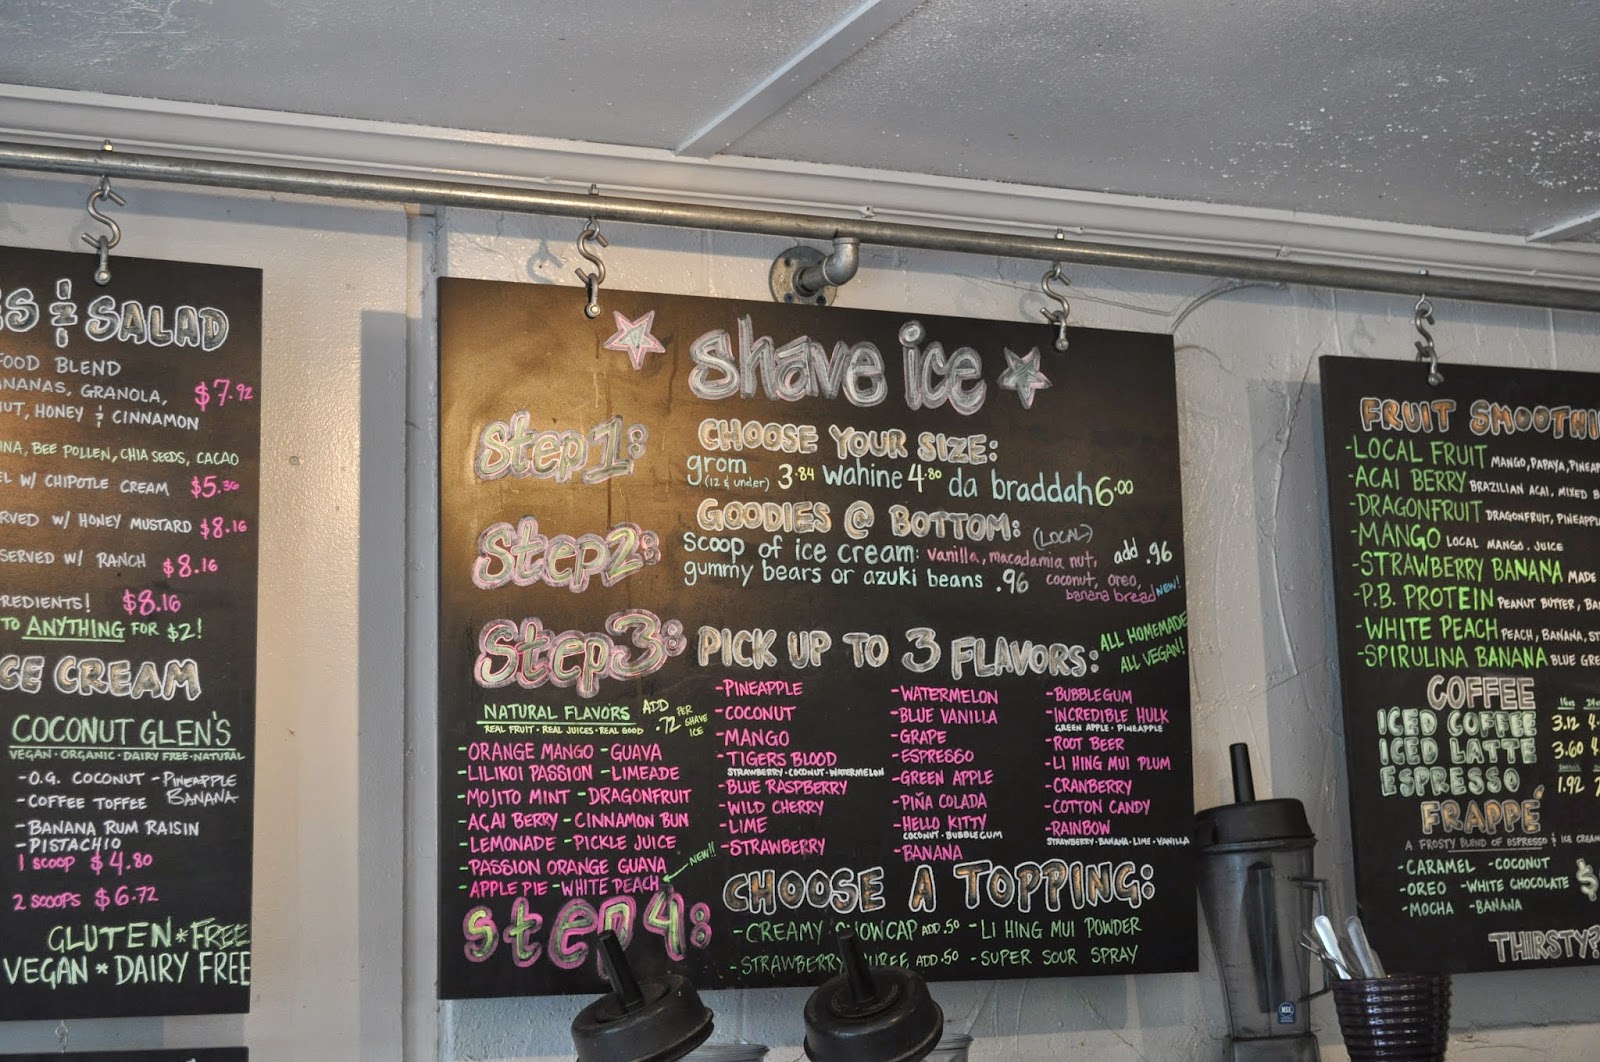 & SALAD
FOOD BLEND
GRANOLA, $7.92
HONEY & CINNAMON
BEE POLLEN, CHIA SEEDS, CACAO
W/ CHIPOTLE CREAM $5.36
W/ HONEY MUSTARD $8.16
W/ RANCH $8.16
$8.16
TO ANYTHING FOR $2!
CREAM
COCONUT GLEN'S
VEGAN · ORGANIC · DAIRY FREE · NATURAL
-O.G. COCONUT -PINEAPPLE BANANA
-COFFEE TOFFEE
-BANANA RUM RAISIN
-PISTACHIO
1 SCOOP $4.80
2 SCOOPS $6.72
GLUTEN*FREE
VEGAN*DAIRY FREE
shave ice
Step 1: CHOOSE YOUR SIZE:
grom (12 & under) 3.84 wahine 4.80 da braddah 6.00
Step 2: GOODIES @ BOTTOM: (LOCAL)
scoop of ice cream: vanilla, macadamia nut, add .96
coconut, oreo,
banana bread NEW!
gummy bears or azuki beans .96
Step 3: PICK UP TO 3 FLAVORS: ALL HOMEMADE
ALL VEGAN!
NATURAL FLAVORS ADD .72 PER SHAVE ICE
REAL FRUIT · REAL JUICES · REAL GOOD
-ORANGE MANGO -GUAVA
-LILIKOI PASSION -LIMEADE
-MOJITO MINT -DRAGONFRUIT
-AÇAI BERRY -CINNAMON BUN
-LEMONADE -PICKLE JUICE
-PASSION ORANGE GUAVA
-APPLE PIE -WHITE PEACH NEW!!
-PINEAPPLE
-COCONUT
-MANGO
-TIGERS BLOOD
STRAWBERRY · COCONUT · WATERMELON
-BLUE RASPBERRY
-WILD CHERRY
-LIME
-STRAWBERRY
-WATERMELON
-BLUE VANILLA
-GRAPE
-ESPRESSO
-GREEN APPLE
-PIÑA COLADA
-HELLO KITTY
COCONUT · BUBBLEGUM
-BANANA
-BUBBLEGUM
-INCREDIBLE HULK
GREEN APPLE · PINEAPPLE
-ROOT BEER
-LI HING MUI PLUM
-CRANBERRY
-COTTON CANDY
-RAINBOW
STRAWBERRY · BANANA · LIME · VANILLA
step 4: CHOOSE A TOPPING:
-CREAMY ADD .50 -LI HING MUI POWDER
-STRAWBERRY ADD .50 -SUPER SOUR SPRAY
FRUIT
-LOCAL FRUIT MANGO, PAPAYA,
-ACAI BERRY BRAZILIAN ACAI, MIXED
-DRAGONFRUIT DRAGONFRUIT,
-MANGO LOCAL MANGO, JUICE
-STRAWBERRY BANANA MADE
-P.B. PROTEIN PEANUT BUTTER,
-WHITE PEACH PEACH, BANANA,
-SPIRULINA BANANA BLUE
COFFEE
ICED COFFEE 3.12
ICED LATTE 3.60
ESPRESSO 1.92
FRAPPÉ
A FROSTY BLEND OF ESPRESSO & ICE
-CARAMEL -COCONUT
-OREO -WHITE CHOCOLATE $
-MOCHA -BANANA
THIRSTY?
NSF